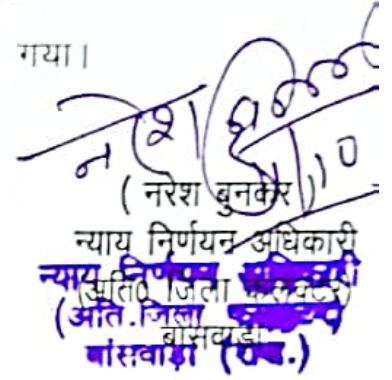 गया।
( नरेश बुनकर )
न्याय निर्णयन अधिकारी
(अति0 जिला कलक्टर)
बांसवाड़ा
न्याय निर्णयन अधिकारी
(अति.जिला
बांसवाड़ा (राज.)